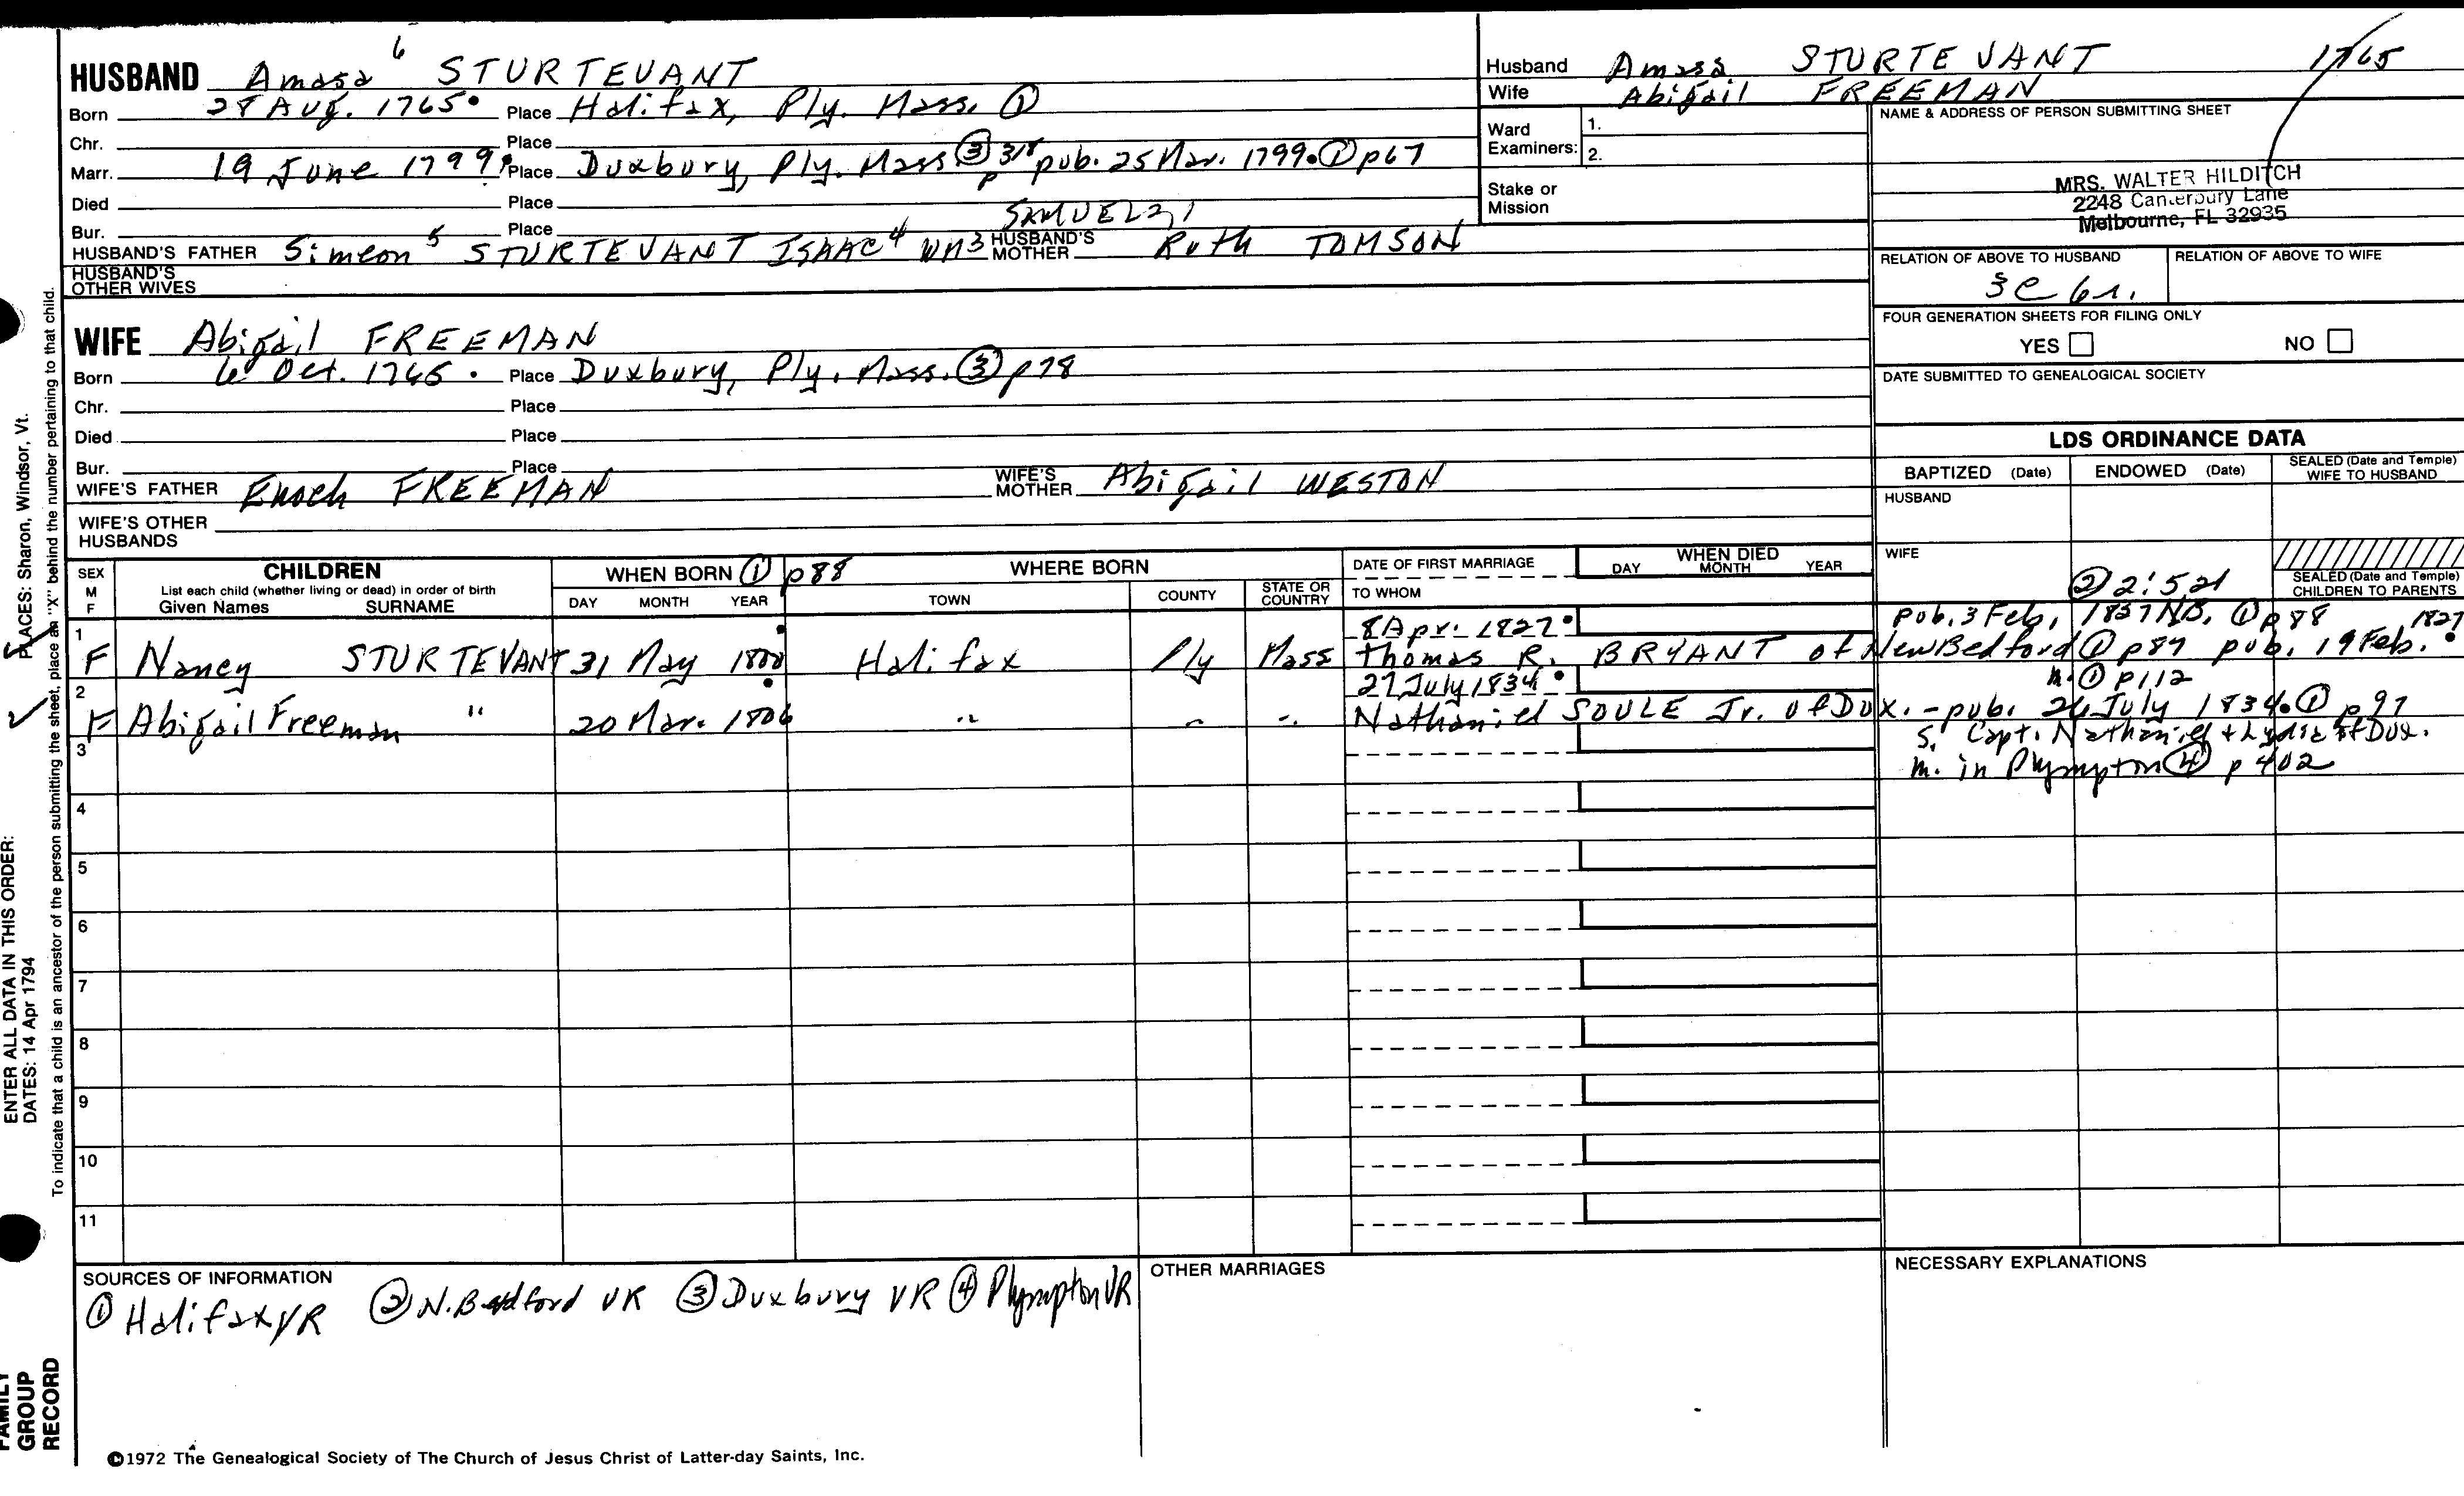 HUSBAND Amasa 6 STURTEVANT
Born 28 Aug. 1765 Place Halifax, Ply. Mass. ①
Chr. Place
Marr. 19 June 1799 Place Duxbury, Ply. Mass. ③ p 318 pub. 25 Mar. 1799 ① p67
Died Place
Bur. Place
SAMUEL 2, 1
HUSBAND'S FATHER Simeon 5 STURTEVANT ISAAC 4 WM 3 HUSBAND'S MOTHER Ruth TOMSON
HUSBAND'S OTHER WIVES
Husband Amasa STURTEVANT 1765
Wife Abigail FREEMAN
Ward Examiners: 1.
2.
Stake or Mission
NAME & ADDRESS OF PERSON SUBMITTING SHEET
MRS. WALTER HILDITCH
2248 Canterbury Lane
Melbourne, FL 32935
RELATION OF ABOVE TO HUSBAND RELATION OF ABOVE TO WIFE
3c 6r.
FOUR GENERATION SHEETS FOR FILING ONLY
YES NO
DATE SUBMITTED TO GENEALOGICAL SOCIETY
WIFE Abigail FREEMAN
Born 6 Oct. 1765 Place Duxbury, Ply. Mass. ③ p78
Chr. Place
Died Place
Bur. Place
WIFE'S FATHER Enoch FREEMAN WIFE'S MOTHER Abigail WESTON
WIFE'S OTHER HUSBANDS
LDS ORDINANCE DATA
BAPTIZED (Date) ENDOWED (Date) SEALED (Date and Temple) WIFE TO HUSBAND
HUSBAND
WIFE
② 2:521
SEALED (Date and Temple) CHILDREN TO PARENTS
SEX M F
CHILDREN
List each child (whether living or dead) in order of birth
Given Names SURNAME
WHEN BORN ① p88
DAY MONTH YEAR
WHERE BORN
TOWN COUNTY STATE OR COUNTRY
DATE OF FIRST MARRIAGE
TO WHOM
WHEN DIED
DAY MONTH YEAR
1 8 Apr. 1827 pub. 3 Feb. 1837 N.B. ① p88 1827
F Nancy STURTEVANT 31 May 1800 Halifax Ply Mass Thomas R. BRYANT of New Bedford ① p87 pub. 19 Feb.
2 27 July 1834 m. ① p112
F Abigail Freeman " 20 Mar. 1806 " " " Nathaniel SOULE Jr. of Dux. - pub. 26 July 1834 ① p97
3 S. Capt. Nathaniel + Lydia of Dux.
m. in Plympton ④ p 402
4
5
6
7
8
9
10
11
SOURCES OF INFORMATION
① Halifax VR ② N. Bedford VR ③ Duxbury VR ④ Plympton VR
OTHER MARRIAGES
NECESSARY EXPLANATIONS
©1972 The Genealogical Society of The Church of Jesus Christ of Latter-day Saints, Inc.
FAMILY GROUP RECORD
ENTER ALL DATA IN THIS ORDER:
DATES: 14 Apr 1794
PLACES: Sharon, Windsor, Vt.
To indicate that a child is an ancestor of the person submitting the sheet, place an "X" behind the number pertaining to that child.